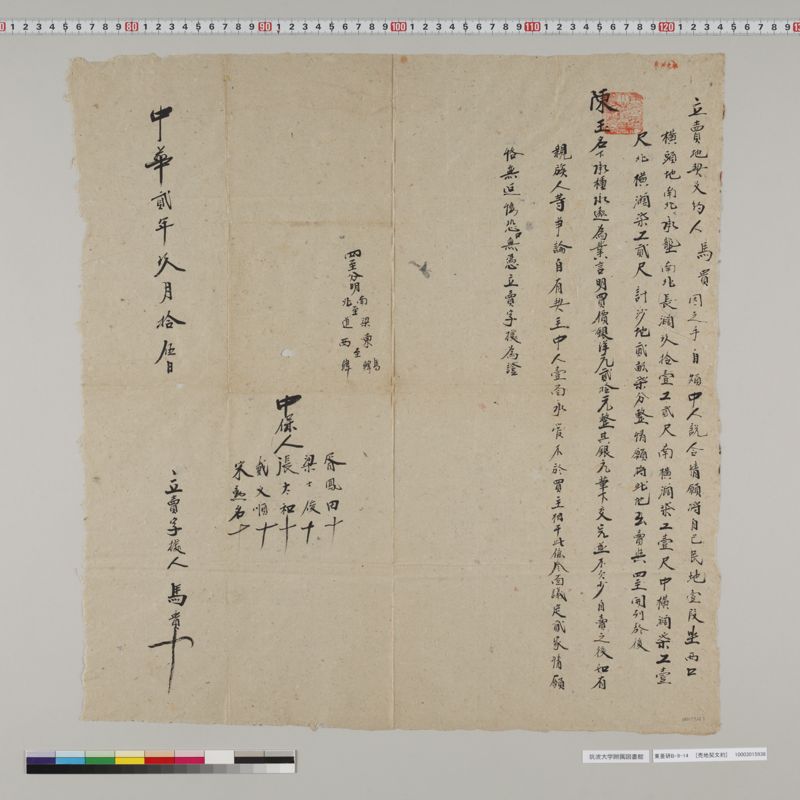 立賣地契文約人馬貴因乏手自煩中人說合情願將自己民地壹段坐西口
橫頭地南北承墾南北長濶玖拾壹工弍尺南橫濶柒工壹尺中橫濶柒工壹
尺北橫濶柒工貳尺計沙地貳畝柒分整情願將此地出賣與四至開列於後
陳玉名下承種永遠為業言明買價銀洋元貳拾元整其銀元筆下交足並不欠少自賣之後如有
親族人等爭論自有契主中人壹面承管不於買主相干此係仝面議定貳家情願
恪無返悔恐口無憑立賣字據為證
四至分明
南至梁東至馬
北道西韓
中保人
喬鳳田十
梁士俊十
張太和十
武文順十
宋魁名十
中華貳年玖月拾伍日
立賣字據人馬貴十
筑波大学附属図書館
東亜研B-9-14 [売地契文約] 10003015938